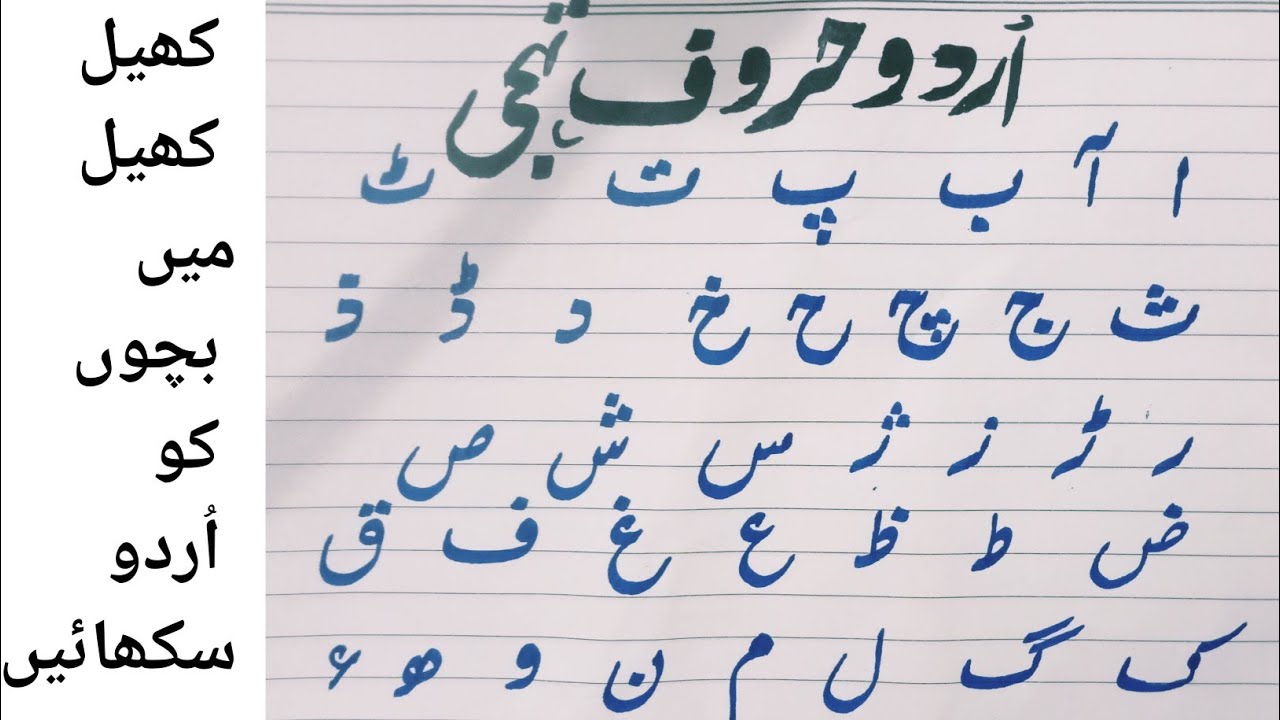 کھیل
کھیل
میں
بچوں
کو
اُردو
سکھائیں
اُردو حروف تہجی
ا آ ب پ ت ٹ
ث ج چ ح خ د ڈ ذ
ر ڑ ز ژ س ش ص
ض ط ظ ع غ ف ق
ک گ ل م ن و ھ ء